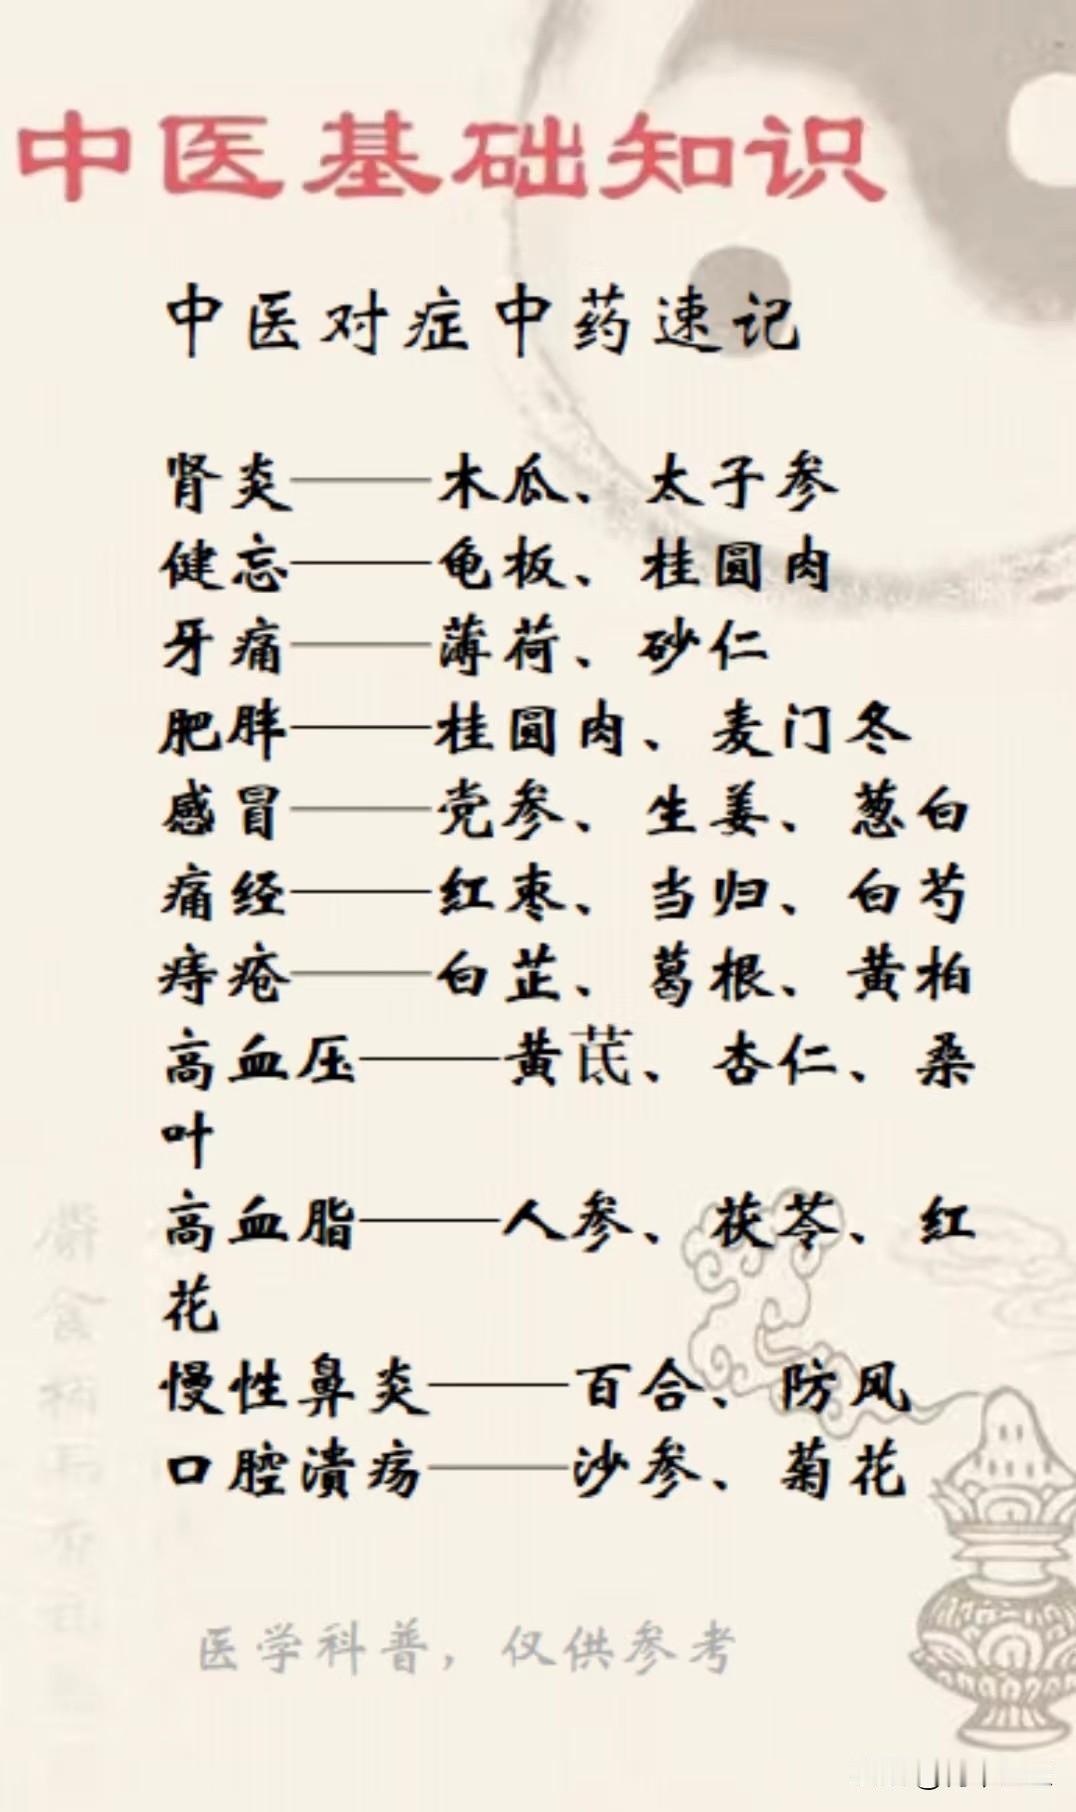 中医基础知识
中医对症中药速记
肾炎——木瓜、太子参
健忘——龟板、桂圆肉
牙痛——薄荷、砂仁
肥胖——桂圆肉、麦门冬
感冒——党参、生姜、葱白
痛经——红枣、当归、白芍
痔疮——白芷、葛根、黄柏
高血压——黄芪、杏仁、桑
叶
高血脂——人参、茯苓、红
花
慢性鼻炎——百合、防风
口腔溃疡——沙参、菊花
医学科普，仅供参考